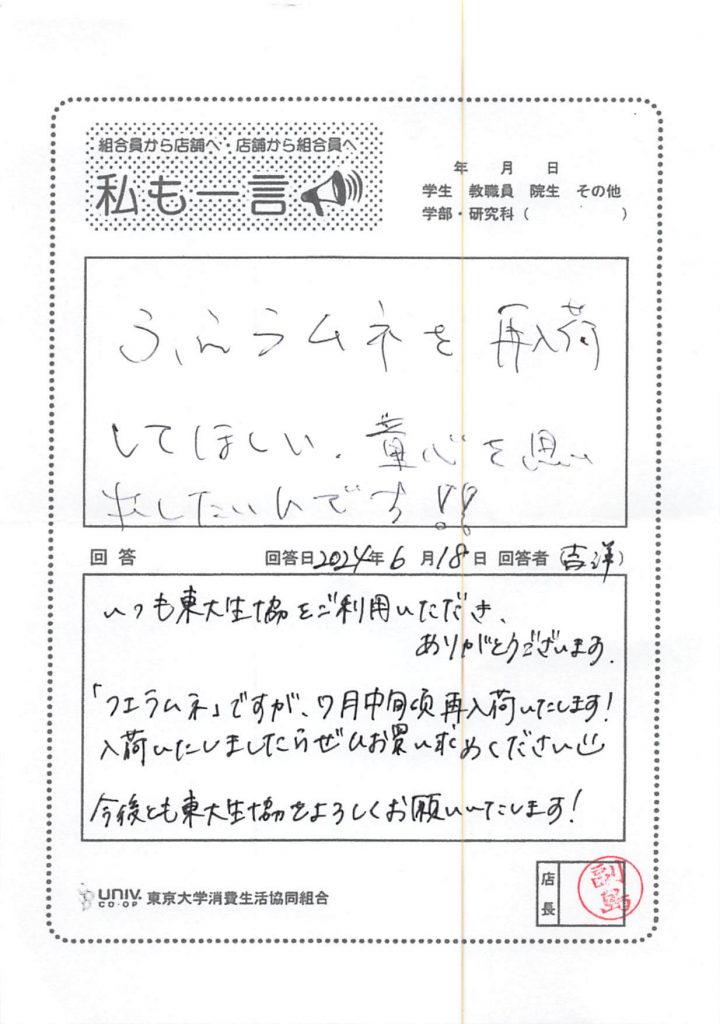 組合員から店舗へ・店舗から組合員へ
私も一言
年 月 日
学生 教職員 院生 その他
学部・研究科( )
ふえラムネを再入荷
してほしい。童心を思い
出したいんです!!
回答 回答日2024年6月18日 回答者(吉洋)
いつも東大生協をご利用いただき、
ありがとうございます。
「フエラムネ」ですが、7月中旬頃再入荷いたします!
入荷いたしましたらぜひお買い求めください
今後とも東大生協をよろしくお願いいたします!
UNIV. CO-OP 東京大学消費生活協同組合
店長
副島